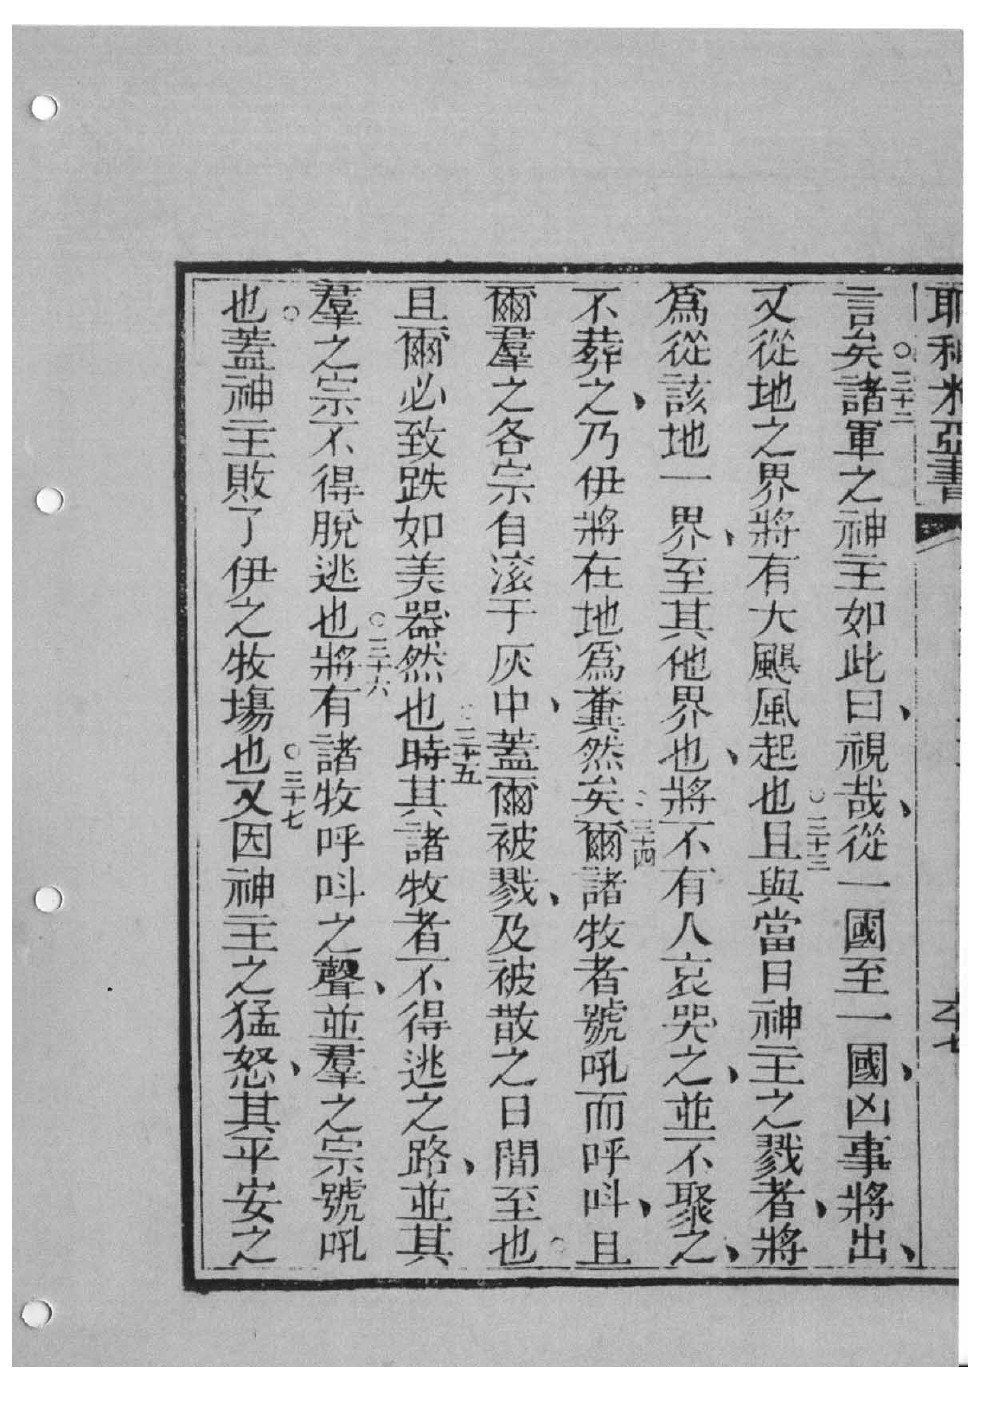 耶利米亞書
言矣○三十二諸軍之神主如此曰、視哉、從一國至一國、凶事將出、
又從地之界將有大颶風起也○三十三且與當日神主之戮者、將
爲從該地一界、至其他界也、將不有人哀哭之、並不聚之、
不葬之、乃伊將在地爲糞然矣○三十四爾諸牧者號吼而呼呌、且
爾羣之各宗自滚于灰中、蓋爾被戮、及被散之日間至也○
且爾必致跌如美器然也○三十五時其諸牧者不得逃之路、並其
羣之宗不得脫逃也○三十六將有諸牧呼呌之聲、並羣之宗號吼
也○蓋神主敗了伊之牧塲也○三十七又因神主之猛怒、其平安之